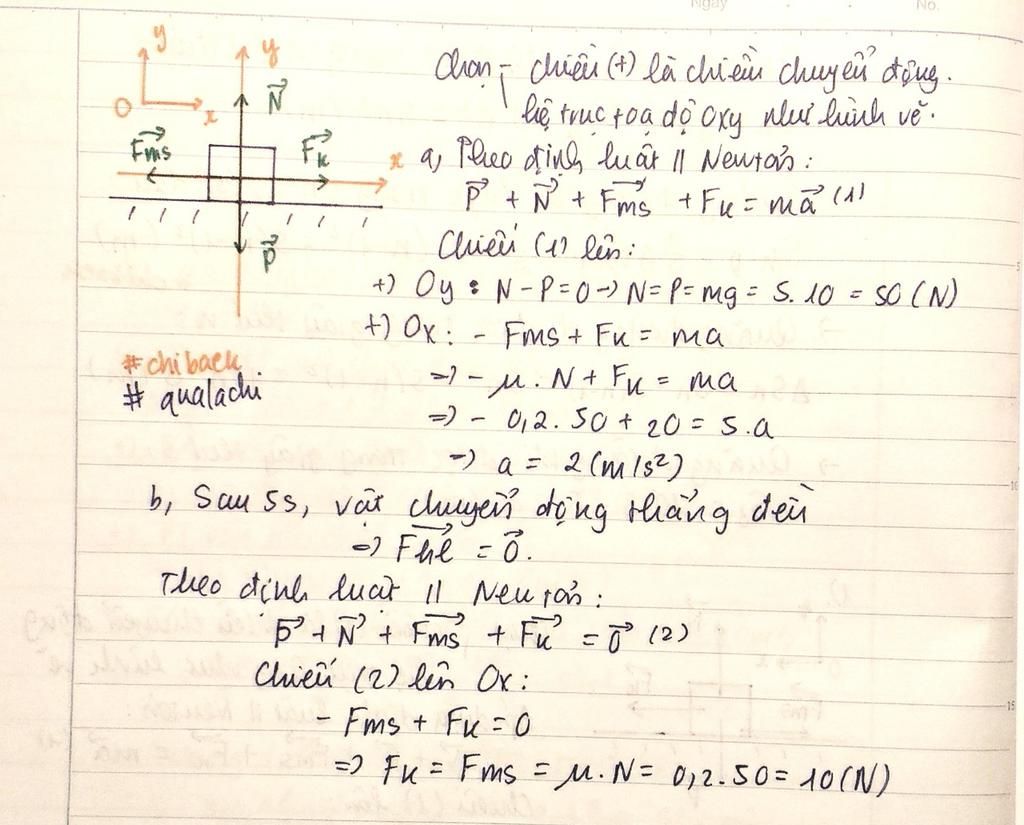 Ngày No.
y y
N⃗
O x
Fms⃗ Fk⃗ x
P⃗
Chọn - chiều (+) là chiều chuyển động.
hệ trục toạ độ Oxy như hình vẽ.
a, Theo định luật II Newton:
P⃗ + N⃗ + Fms⃗ + Fk = ma⃗ (1)
Chiếu (1) lên:
+) Oy: N - P = 0 → N = P = mg = 5.10 = 50 (N)
+) Ox: - Fms + Fk = ma
⇒ - μ.N + Fk = ma
⇒ - 0,2.50 + 20 = 5.a
→ a = 2 (m/s²)
#chibaek
# qualachi
b, Sau 5s, vật chuyển động thẳng đều
⇒ Fhl⃗ = 0⃗.
Theo định luật II Newton:
P⃗ + N⃗ + Fms⃗ + Fk⃗ = 0⃗ (2)
Chiếu (2) lên Ox:
- Fms + Fk = 0
⇒ Fk = Fms = μ.N = 0,2.50 = 10 (N)